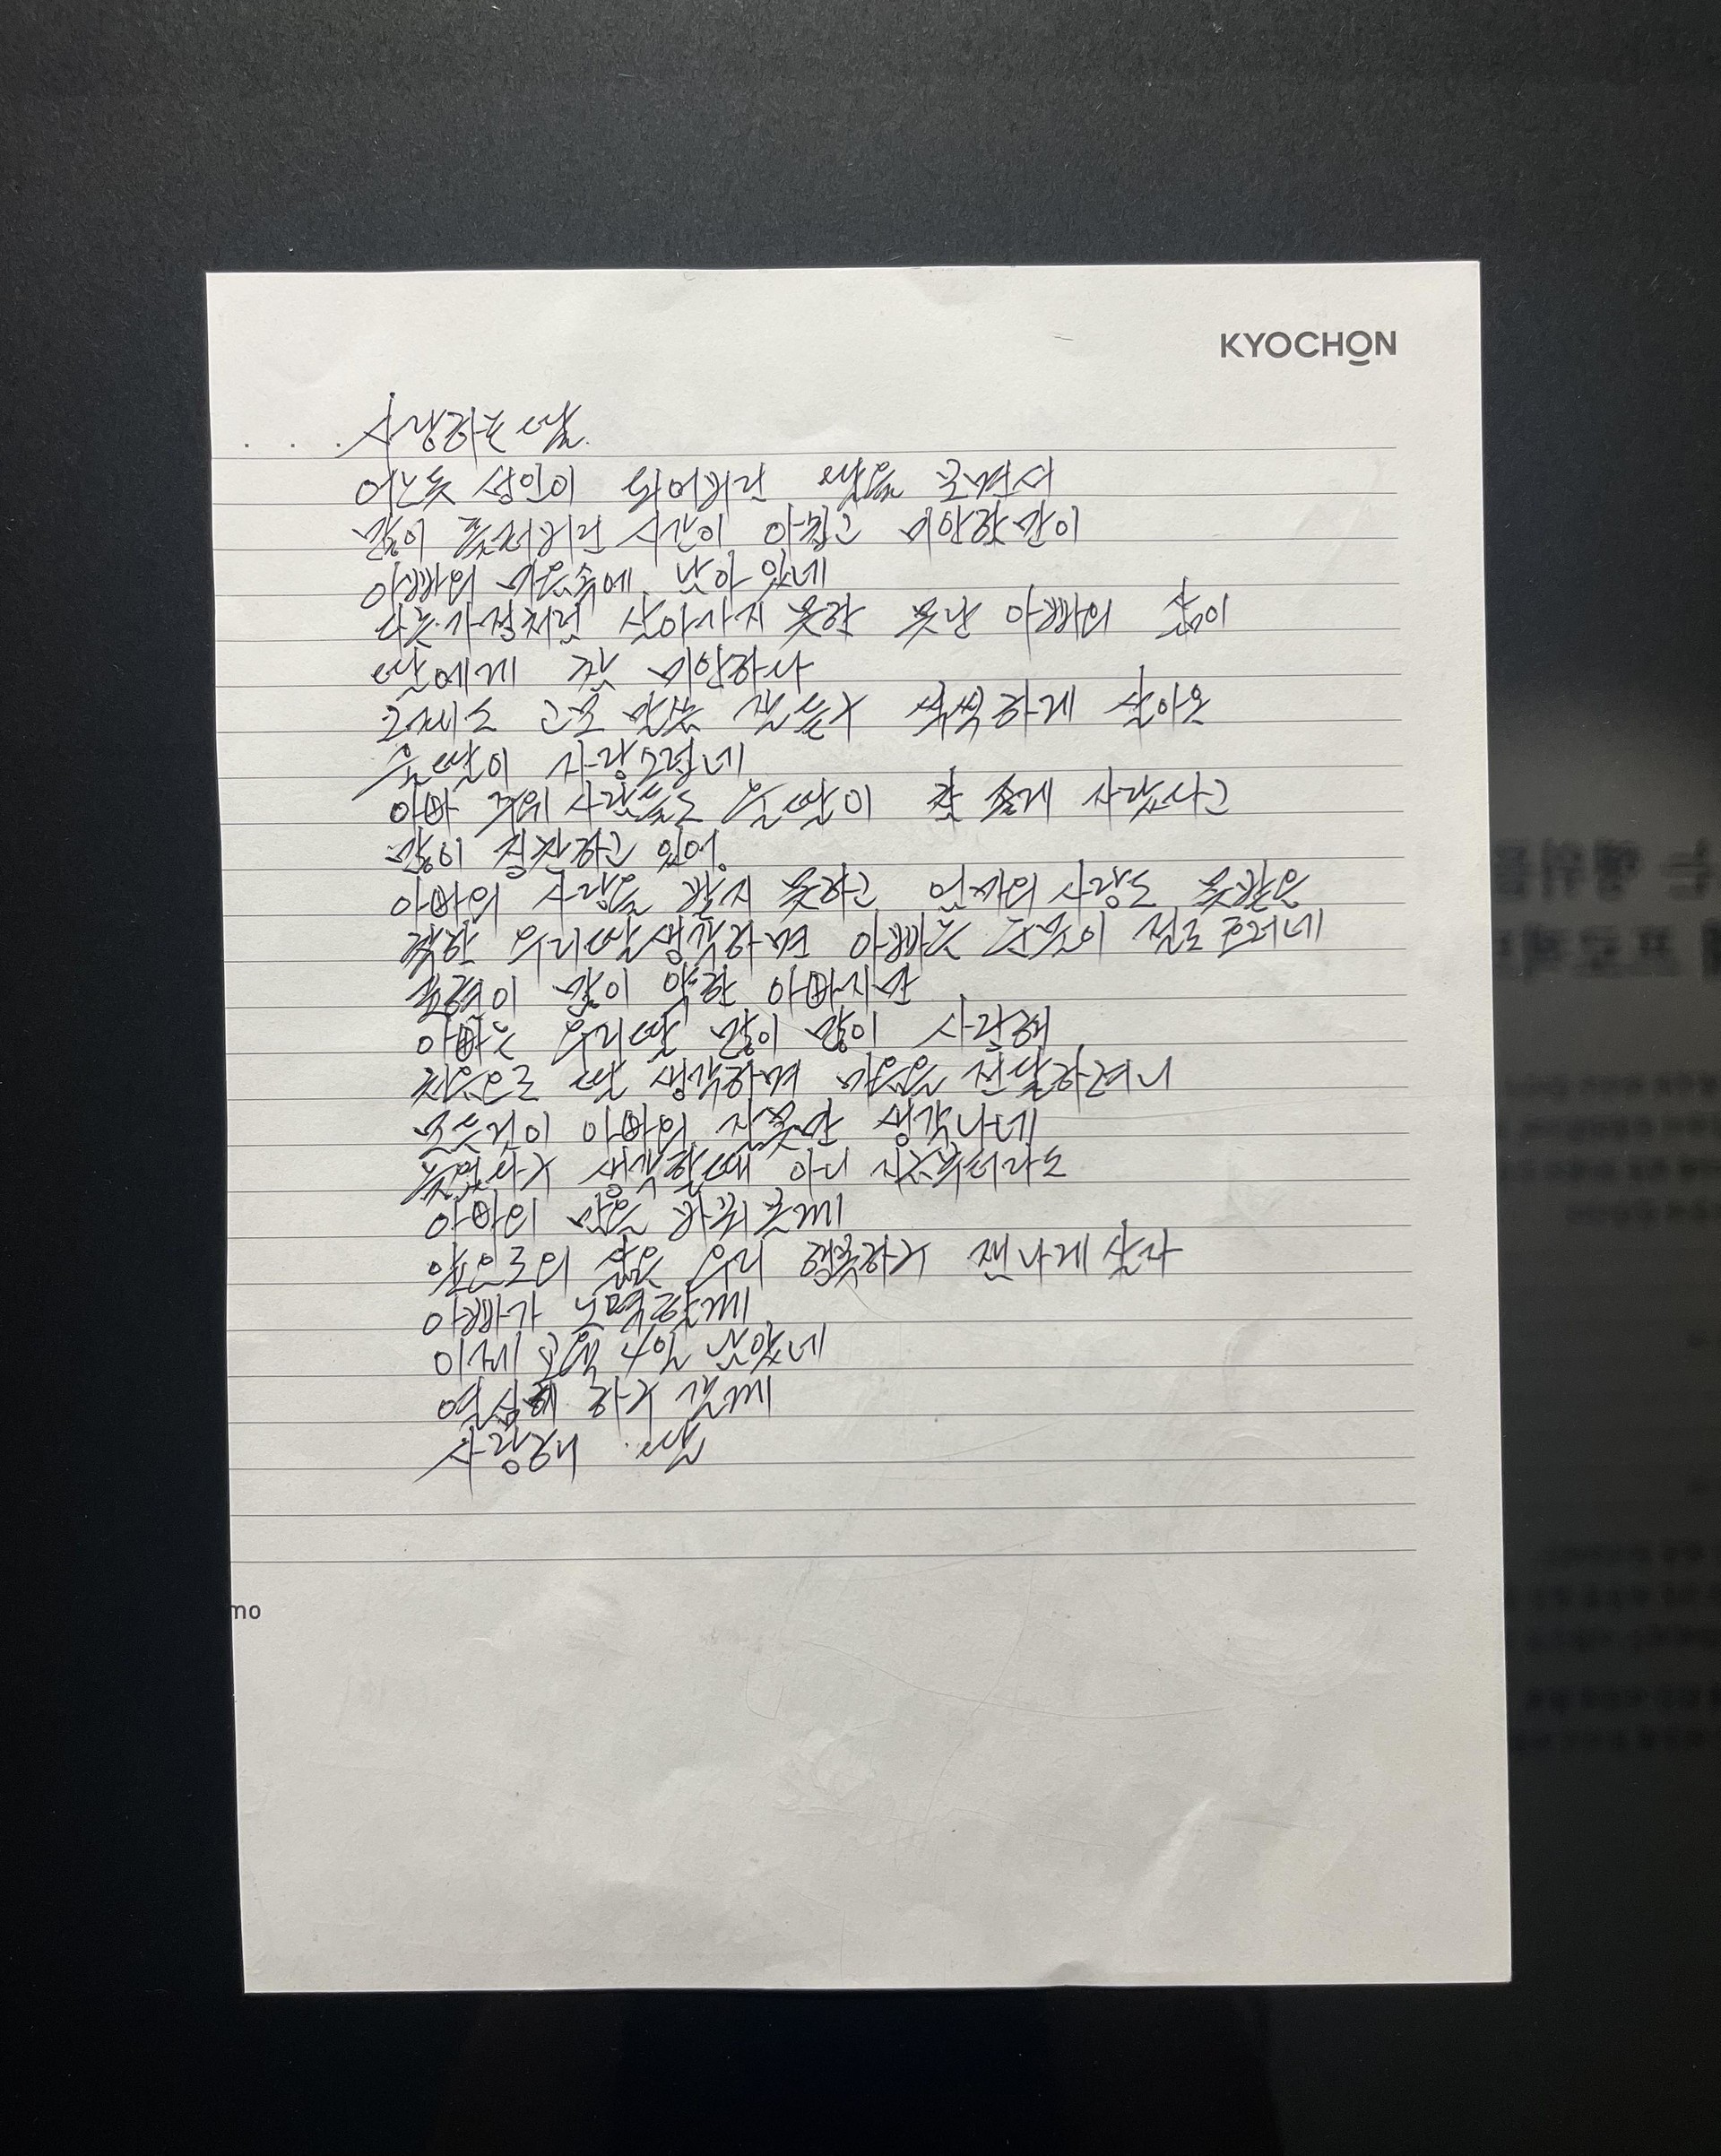 KYOCHON
사랑하는 딸.
어느듯 성인이 되어버린 딸을 보면서
많이 흘러버린 시간이 아쉽고 미안함만이
아빠의 마음속에 남아 있네
다른가정처럼 살아가지 못한 못난 아빠의 삶이
딸에게 참 미안하다
그래도 고모 말씀 잘듣고 씩씩하게 살아온
울딸이 사랑스럽네
아빠 주위 사람들도 울딸이 잘 곱게 자랐다고
많이 칭찬하고 있어.
아빠의 사랑을 받지 못하고 엄마의 사랑도 못받은
착한 우리딸생각하며 아빠는 눈물이 절로 흐르네
표현이 많이 약한 아빠지만
아빠는 우리딸 많이 많이 사랑해
처음으로 딸 생각하며 마음을 전달하려니
모든것이 아빠의 잘못만 생각나네
늦었다고 생각할때 아니 지금부터라도
아빠의 맘을 바꿔볼께
앞으로의 삶은 우리 행복하고 잼나게살자
아빠가 노력할께
이제 교육 4일 남았네
열심히 하고 갈께
사랑해 딸
mo